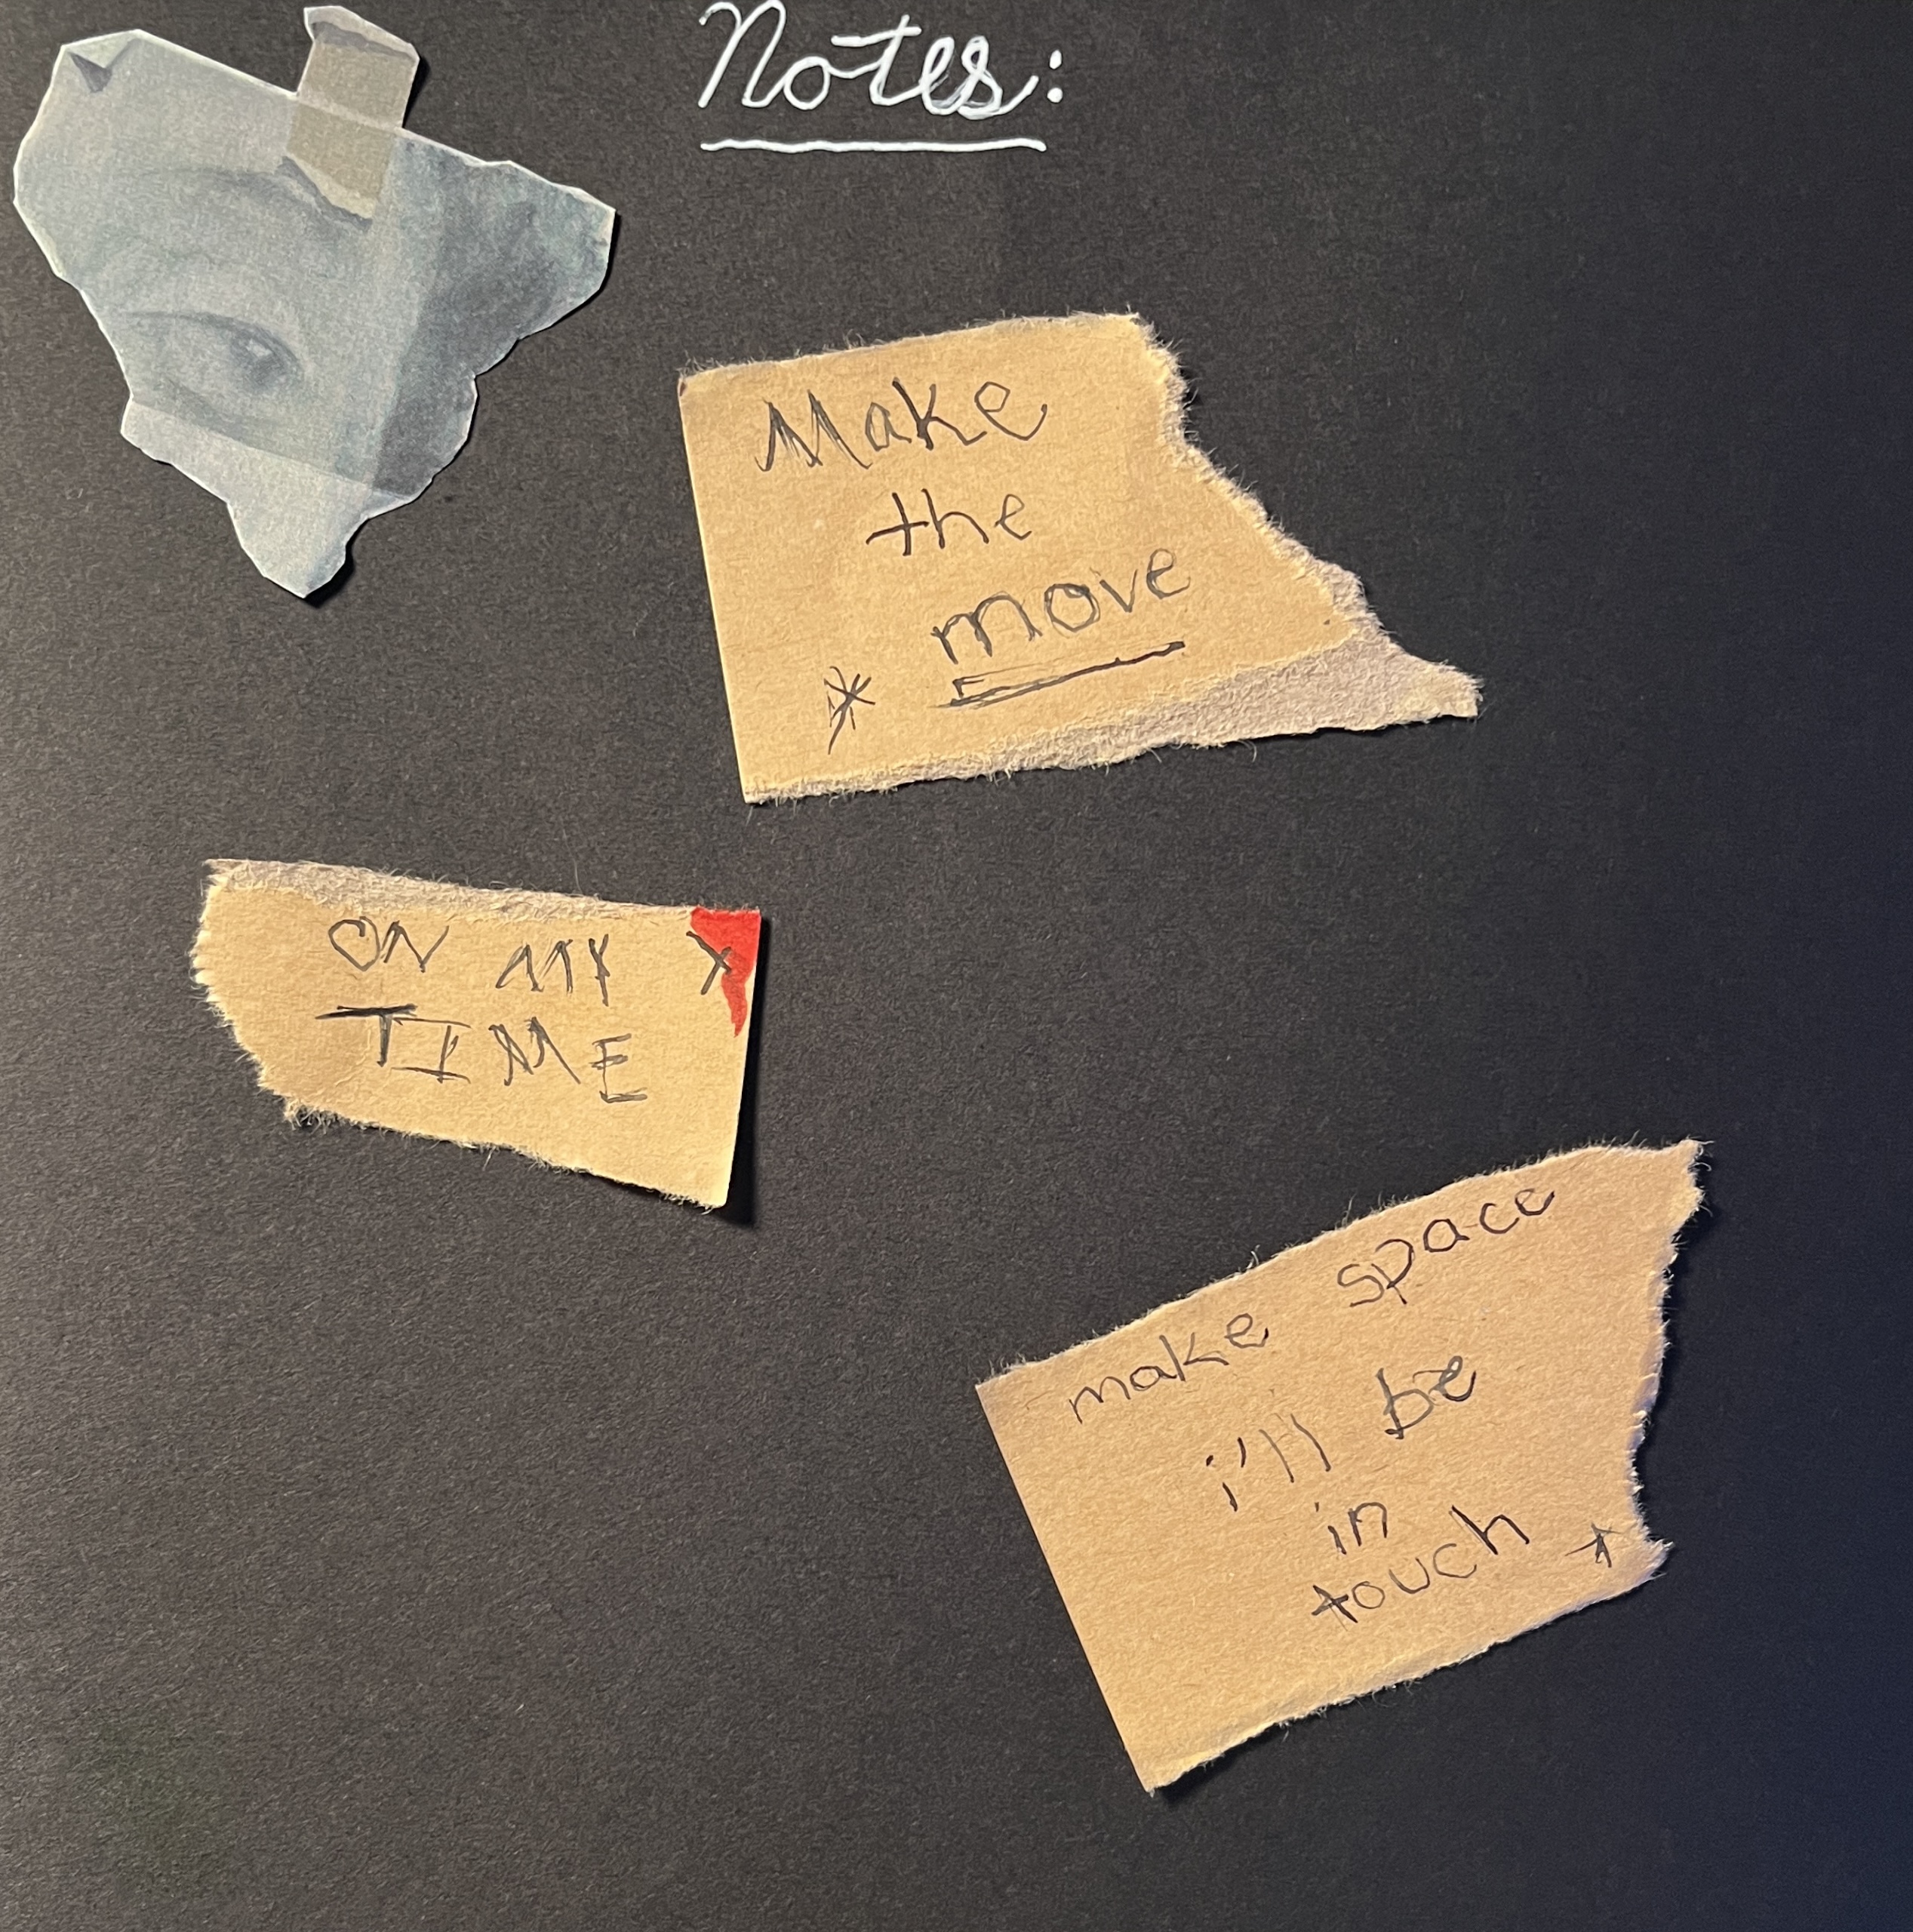 Notes:
Make
the
move
*
ON MY X
TIME
make space
i'll be
in
touch